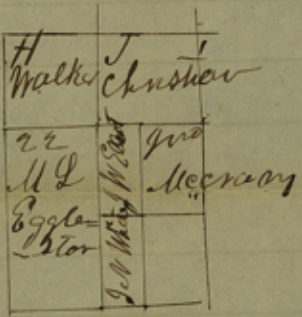 H
Walker
J
Christian
22
M L
Eggle=
-ston
J N
W East
Jno
Mccrary